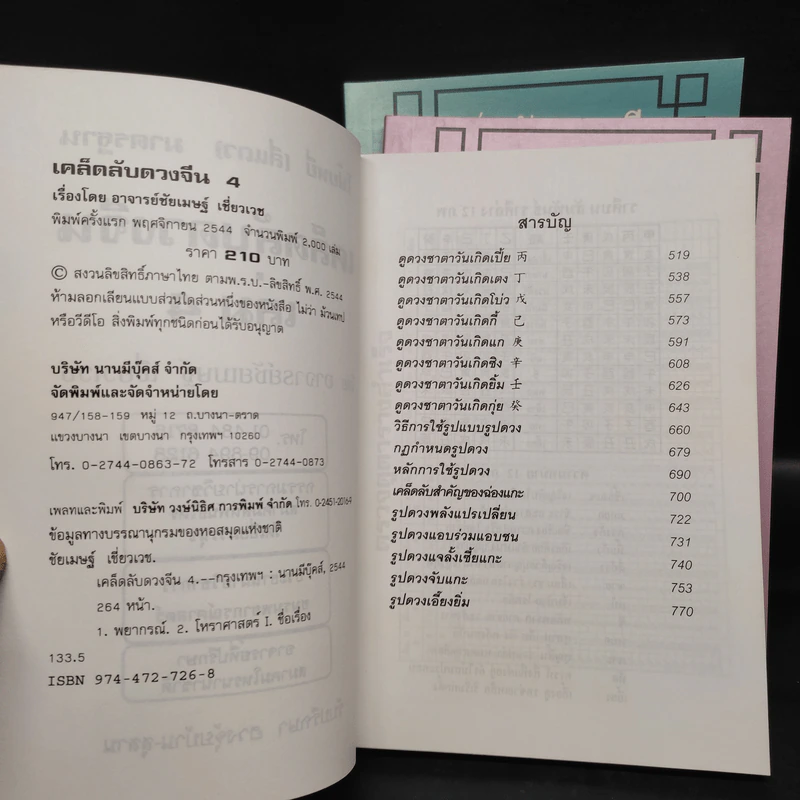 เคล็ดลับดวงจีน 4
เรื่องโดย อาจารย์ชัยเมษฐ์ เชี่ยวเวช
พิมพ์ครั้งแรก พฤศจิกายน 2544 จำนวนพิมพ์ 2,000 เล่ม
ราคา 210 บาท
© สงวนลิขสิทธิ์ภาษาไทย ตามพ.ร.บ.-ลิขสิทธิ์ พ.ศ. 2544
ห้ามลอกเลียนแบบส่วนใดส่วนหนึ่งของหนังสือ ไม่ว่า ม้วนเทป
หรือวีดีโอ สิ่งพิมพ์ทุกชนิดก่อนได้รับอนุญาต
บริษัท นานมีบุ๊คส์ จำกัด
จัดพิมพ์และจัดจำหน่ายโดย
947/158-159 หมู่ 12 ถ.บางนา-ตราด
แขวงบางนา เขตบางนา กรุงเทพฯ 10260
โทร. 0-2744-0863-72 โทรสาร 0-2744-0873
เพลทและพิมพ์ บริษัท วงษ์นิธิศ การพิมพ์ จำกัด โทร. 0-2451-2016-9
ข้อมูลทางบรรณานุกรมของหอสมุดแห่งชาติ
ชัยเมษฐ์ เชี่ยวเวช.
เคล็ดลับดวงจีน 4.--กรุงเทพฯ : นานมีบุ๊คส์, 2544
264 หน้า.
1. พยากรณ์. 2. โหราศาสตร์ I. ชื่อเรื่อง
133.5
ISBN 974-472-726-8
สารบัญ
ดูดวงชาตาวันเกิดเปี้ย 丙 519
ดูดวงชาตาวันเกิดเตง 丁 538
ดูดวงชาตาวันเกิดโบ่ว 戊 557
ดูดวงชาตาวันเกิดกี้ 己 573
ดูดวงชาตาวันเกิดแก 庚 591
ดูดวงชาตาวันเกิดซิง 辛 608
ดูดวงชาตาวันเกิดยิ้ม 壬 626
ดูดวงชาตาวันเกิดกุ่ย 癸 643
วิธีการใช้รูปแบบรูปดวง 660
กฎกำหนดรูปดวง 679
หลักการใช้รูปดวง 690
เคล็ดลับสำคัญของฉ่องแกะ 700
รูปดวงพลังแปรเปลี่ยน 722
รูปดวงแอบร่วมแอบชน 731
รูปดวงแจลั้งเซี้ยแกะ 740
รูปดวงจับแกะ 753
รูปดวงเอี้ยงยิ่ม 770